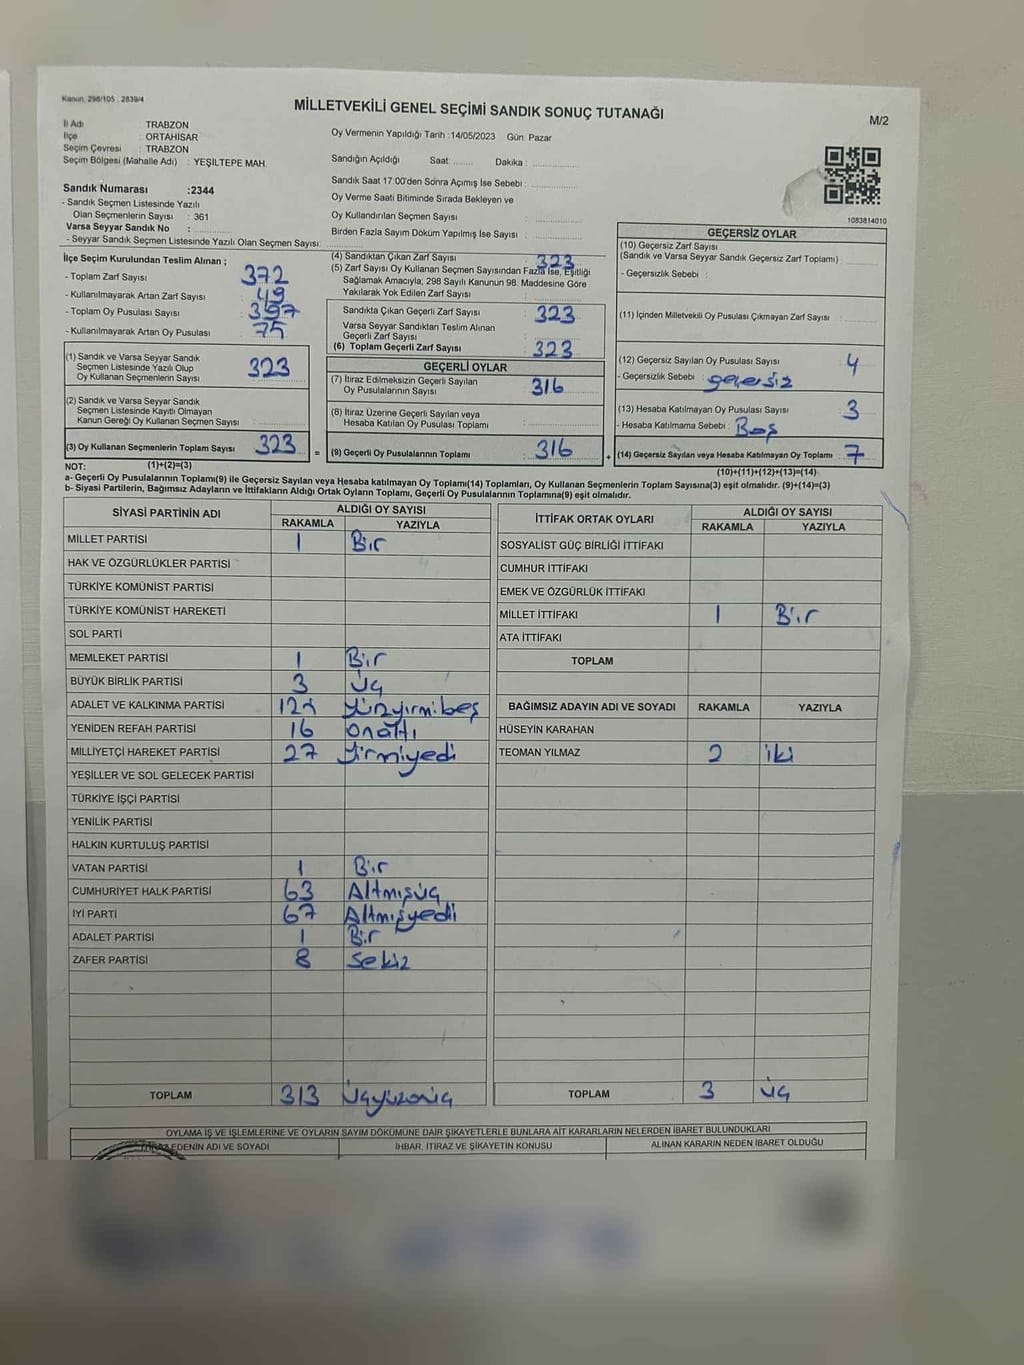 Kanun: 298/105 : 2839/4
MİLLETVEKİLİ GENEL SEÇİMİ SANDIK SONUÇ TUTANAĞI
M/2
İl Adı TRABZON
İlçe : ORTAHİSAR
Seçim Çevresi : TRABZON
Seçim Bölgesi (Mahalle Adı) : YEŞİLTEPE MAH.
Sandık Numarası :2344
- Sandık Seçmen Listesinde Yazılı
Olan Seçmenlerin Sayısı : 361
Varsa Seyyar Sandık No :
- Seyyar Sandık Seçmen Listesinde Yazılı Olan Seçmen Sayısı:
Oy Vermenin Yapıldığı Tarih :14/05/2023 Gün: Pazar
Sandığın Açıldığı Saat: Dakika :
Sandık Saat 17:00'den Sonra Açımış İse Sebebi :
Oy Verme Saati Bitiminde Sırada Bekleyen ve
Oy Kullandırılan Seçmen Sayısı :
Birden Fazla Sayım Döküm Yapılmış İse Sayısı :
1083814010
İlçe Seçim Kurulundan Teslim Alınan ;
- Toplam Zarf Sayısı : 372
- Kullanılmayarak Artan Zarf Sayısı : 49
- Toplam Oy Pusulası Sayısı : 397
- Kullanılmayarak Artan Oy Pusulası : 75
(1) Sandık ve Varsa Seyyar Sandık
Seçmen Listesinde Yazılı Olup
Oy Kullanan Seçmenlerin Sayısı : 323
(2) Sandık ve Varsa Seyyar Sandık
Seçmen Listesinde Kayıtlı Olmayan
Kanun Gereği Oy Kullanan Seçmen Sayısı :
(3) Oy Kullanan Seçmenlerin Toplam Sayısı : 323
(4) Sandıktan Çıkan Zarf Sayısı : 323
(5) Zarf Sayısı Oy Kullanan Seçmen Sayısından Fazla İse, Eşitliği
Sağlamak Amacıyla, 298 Sayılı Kanunun 98. Maddesine Göre
Yakılarak Yok Edilen Zarf Sayısı :
Sandıkta Çıkan Geçerli Zarf Sayısı : 323
Varsa Seyyar Sandıktan Teslim Alınan
Geçerli Zarf Sayısı :
(6) Toplam Geçerli Zarf Sayısı : 323
GEÇERLİ OYLAR
(7) İtiraz Edilmeksizin Geçerli Sayılan
Oy Pusulalarının Sayısı : 316
(8) İtiraz Üzerine Geçerli Sayılan veya
Hesaba Katılan Oy Pusulası Toplamı :
= (9) Geçerli Oy Pusulalarının Toplamı : 316
GEÇERSİZ OYLAR
(10) Geçersiz Zarf Sayısı
(Sandık ve Varsa Seyyar Sandık Geçersiz Zarf Toplamı) :
- Geçersizlik Sebebi :
(11) İçinden Milletvekili Oy Pusulası Çıkmayan Zarf Sayısı :
(12) Geçersiz Sayılan Oy Pusulası Sayısı : 4
- Geçersizlik Sebebi : geçersiz
(13) Hesaba Katılmayan Oy Pusulası Sayısı : 3
- Hesaba Katılmama Sebebi : Boş
+ (14) Geçersiz Sayılan veya Hesaba Katılmayan Oy Toplamı : 7
NOT: (1)+(2)=(3)
(10)+(11)+(12)+(13)=(14)
a- Geçerli Oy Pusulalarının Toplamı(9) ile Geçersiz Sayılan veya Hesaba katılmayan Oy Toplamı(14) Toplamları, Oy Kullanan Seçmenlerin Toplam Sayısına(3) eşit olmalıdır. (9)+(14)=(3)
b- Siyasi Partilerin, Bağımsız Adayların ve İttifakların Aldığı Ortak Oyların Toplamı, Geçerli Oy Pusulalarının Toplamına(9) eşit olmalıdır.
SİYASİ PARTİNİN ADI ALDIĞI OY SAYISI
RAKAMLA YAZIYLA
MİLLET PARTİSİ 1 Bir
HAK VE ÖZGÜRLÜKLER PARTİSİ
TÜRKİYE KOMÜNİST PARTİSİ
TÜRKİYE KOMÜNİST HAREKETİ
SOL PARTİ
MEMLEKET PARTİSİ 1 Bir
BÜYÜK BİRLİK PARTİSİ 3 Üç
ADALET VE KALKINMA PARTİSİ 125 Yüzyirmibeş
YENİDEN REFAH PARTİSİ 16 Onaltı
MİLLİYETÇİ HAREKET PARTİSİ 27 Yirmiyedi
YEŞİLLER VE SOL GELECEK PARTİSİ
TÜRKİYE İŞÇİ PARTİSİ
YENİLİK PARTİSİ
HALKIN KURTULUŞ PARTİSİ
VATAN PARTİSİ 1 Bir
CUMHURİYET HALK PARTİSİ 63 Altmışüç
İYİ PARTİ 67 Altmışyedi
ADALET PARTİSİ 1 Bir
ZAFER PARTİSİ 8 Sekiz
TOPLAM 313 Üçyüzonüç
İTTİFAK ORTAK OYLARI ALDIĞI OY SAYISI
RAKAMLA YAZIYLA
SOSYALİST GÜÇ BİRLİĞİ İTTİFAKI
CUMHUR İTTİFAKI
EMEK VE ÖZGÜRLÜK İTTİFAKI
MİLLET İTTİFAKI 1 Bir
ATA İTTİFAKI
TOPLAM
BAĞIMSIZ ADAYIN ADI VE SOYADI RAKAMLA YAZIYLA
HÜSEYİN KARAHAN
TEOMAN YILMAZ 2 İki
TOPLAM 3 Üç
OYLAMA İŞ VE İŞLEMLERİNE VE OYLARIN SAYIM DÖKÜMÜNE DAİR ŞİKAYETLERLE BUNLARA AİT KARARLARIN NELERDEN İBARET BULUNDUKLARI
EDENİN ADI VE SOYADI İHBAR, İTİRAZ VE ŞİKAYETİN KONUSU ALINAN KARARIN NEDEN İBARET OLDUĞU